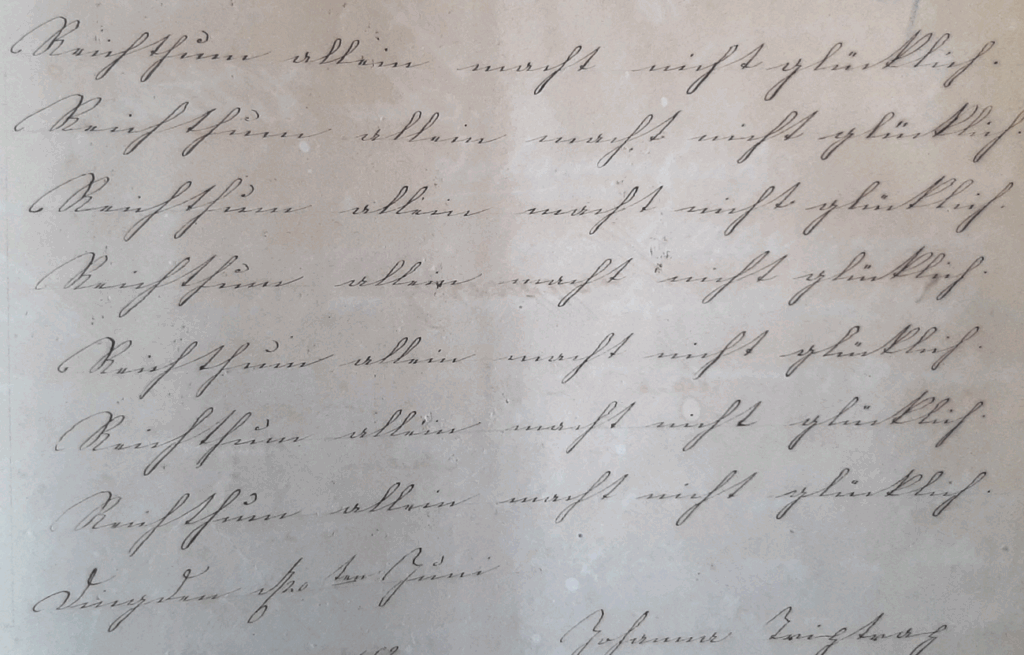 Reichthum allein macht nicht glücklich.
Reichthum allein macht nicht glücklich.
Reichthum allein macht nicht glücklich.
Reichthum allein macht nicht glücklich.
Reichthum allein macht nicht glücklich.
Reichthum allein macht nicht glücklich.
Reichthum allein macht nicht glücklich.
Dingden ten Juni
Johanna Triptrap